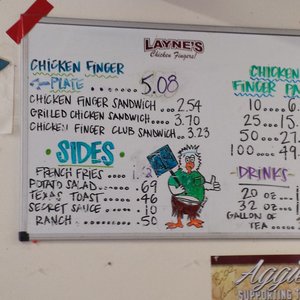 LAYNE'S
Chicken Fingers!
CHICKEN FINGER
PLATE 5.08
CHICKEN FINGER SANDWICH ... 2.54
GRILLED CHICKEN SANDWICH .... 3.70
CHICKEN FINGER CLUB SANDWICH .. 3.23
SIDES
FRENCH FRIES
POTATO SALAD .69
TEXAS TOAST .46
SECRET SAUCE .10
RANCH .50
CHICKEN
FINGER
10
25
50
100
DRINKS
20 OZ
32 OZ
GALLON OF
TEA
Aggie
SUPPORTING